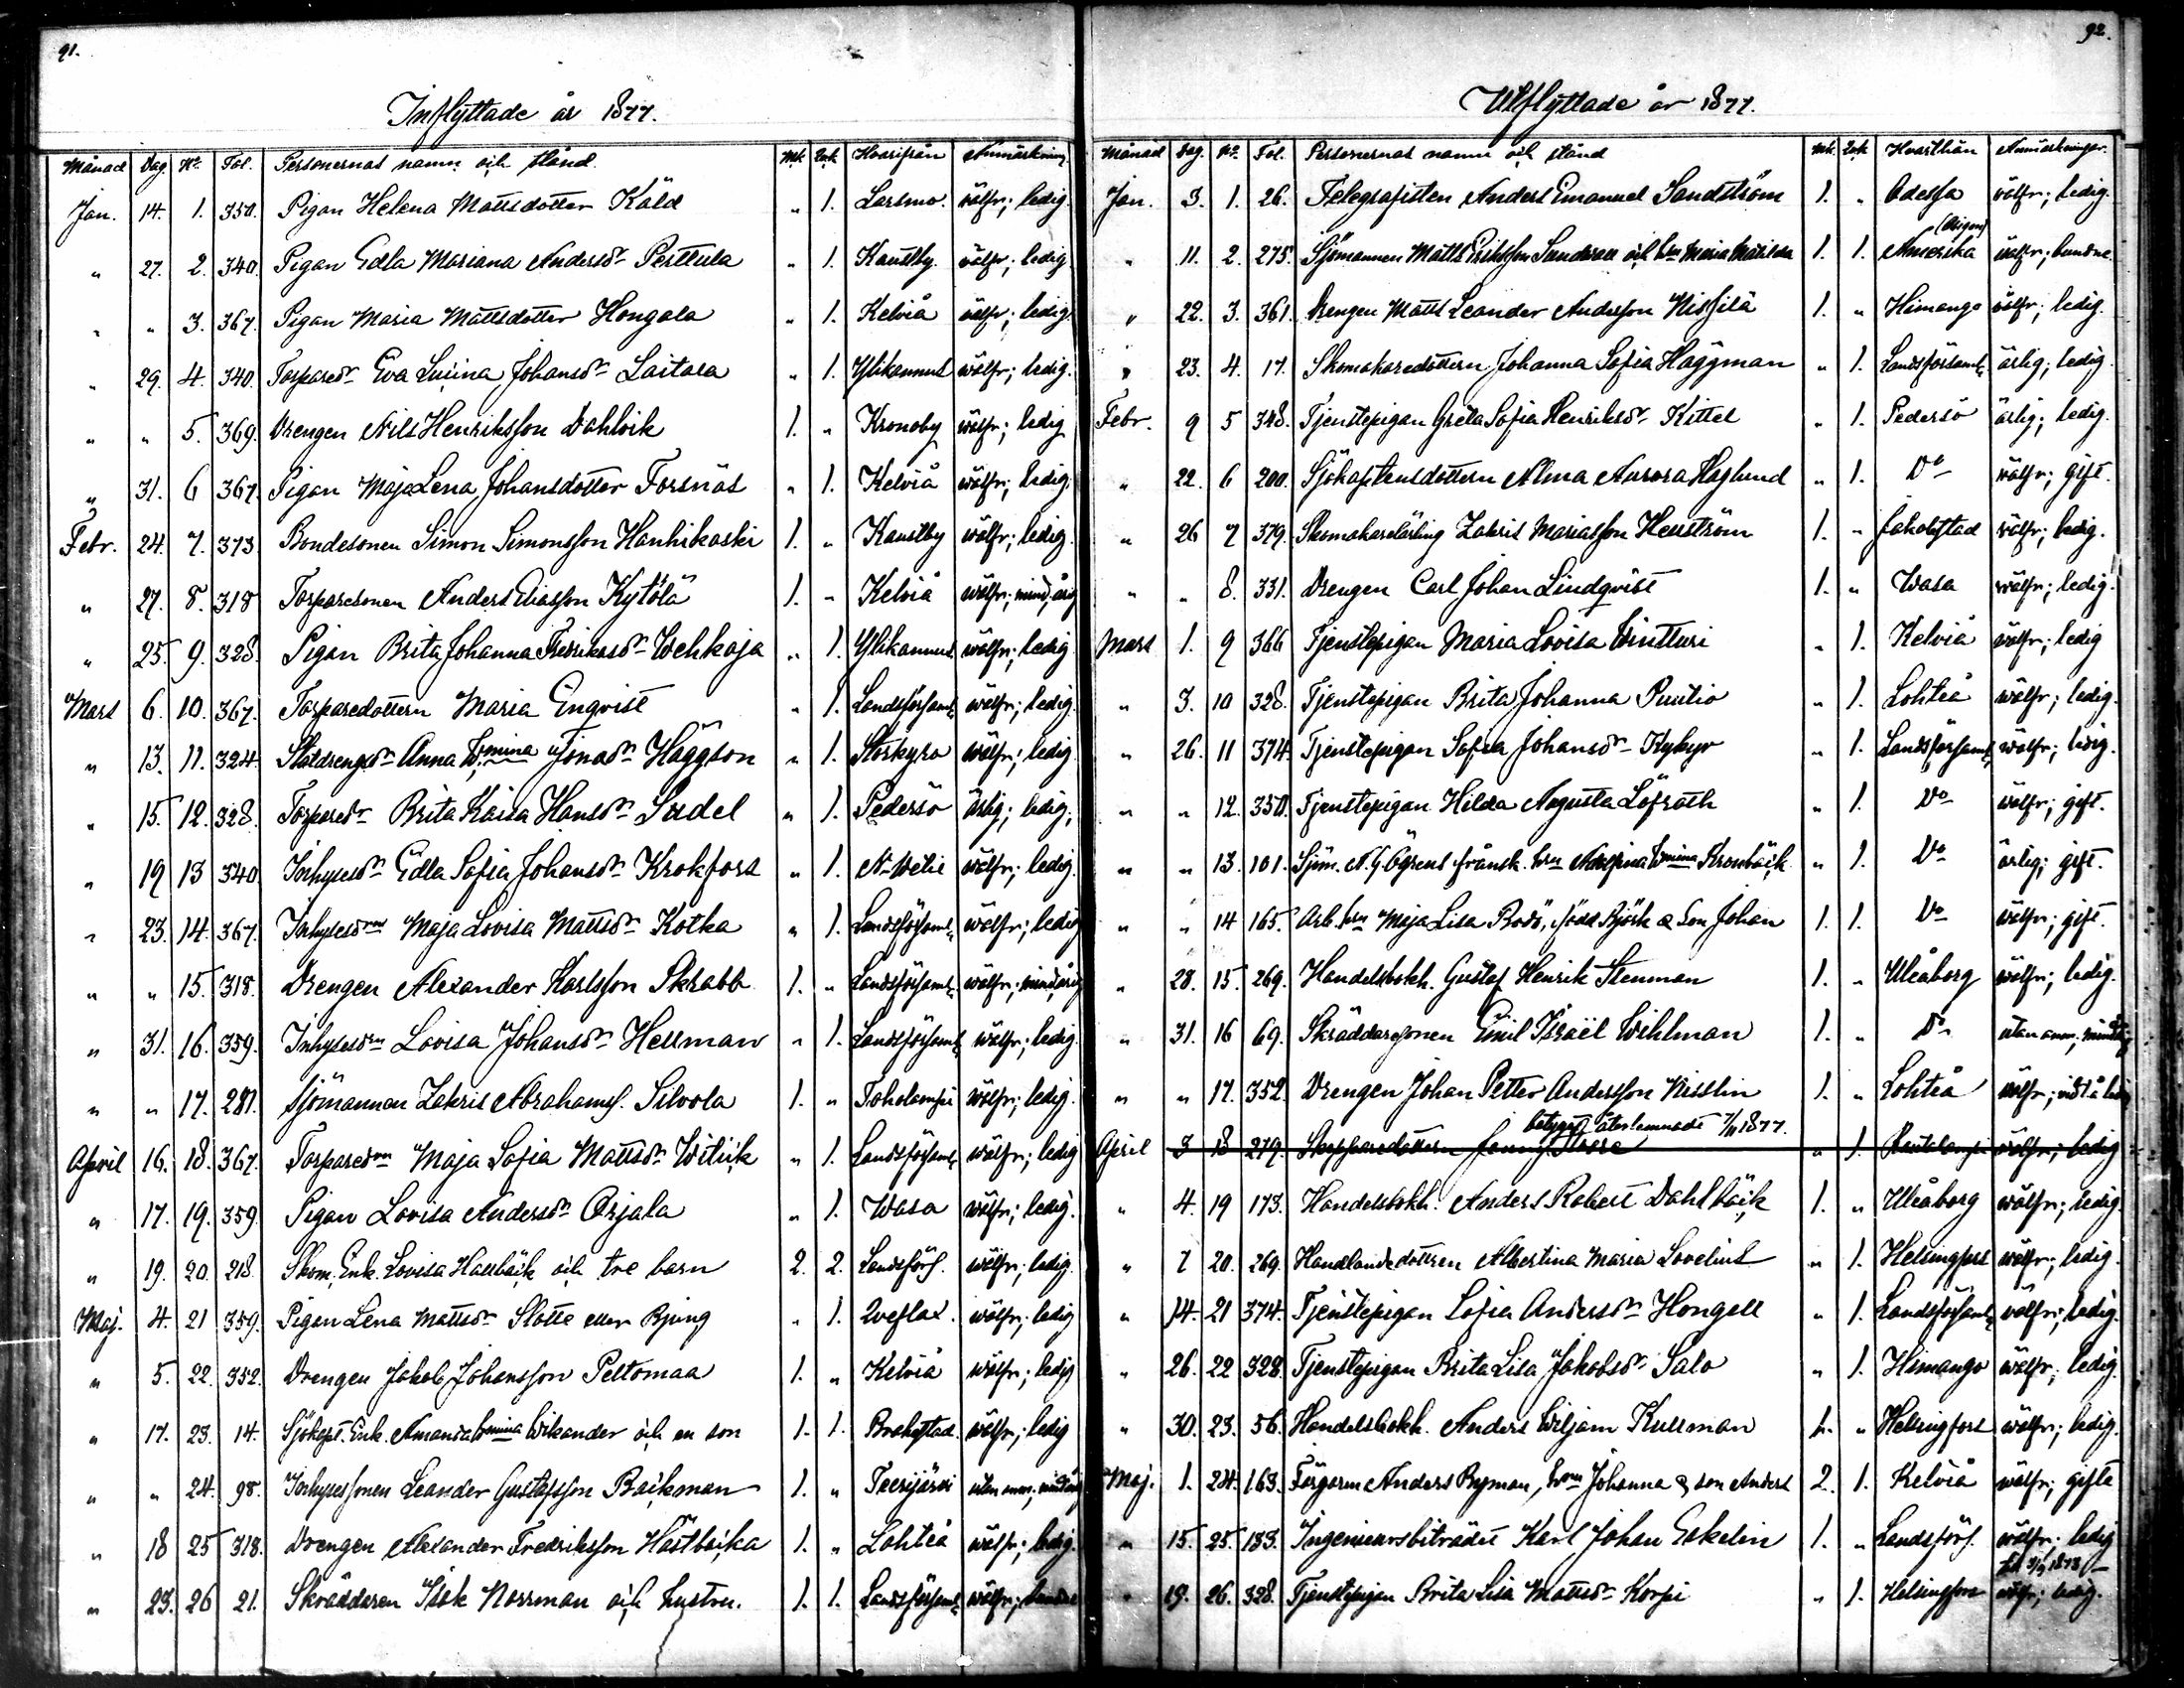 91.
Inflyttade år 1877.
Månad Dag. No. Fol. Personernas namn och stånd. Mk. Qvk Hvarifrån Anmärkning
Jan. 14. 1. 350. Pigan Helena Mattsdotter Kåld " 1. Larsmo. wälfr; ledig.
" 27. 2. 340. Pigan Edla Mariana Andersdr Perttula " 1. Kaustby. wälfr; ledig
" " 3. 367. Pigan Maria Mattsdotter Hongala " 1. Kelviå wälfr; ledig.
" 29. 4. 340. Torparedr Eva Lusina Johansdr Laitala " 1. Ylikannus wälfr; ledig.
" " 5. 369. Drengen Nils Henriksson Dahlvik 1. " Kronoby wälfr; ledig
" 31. 6 367. Pigan Maja Lena Johansdotter Forsnäs " 1. Kelviå wälfr; ledig.
Febr. 24. 7. 373 Bondesonen Simon Simonsson Hanhikoski 1. " Kaustby wälfr; ledig.
" 27. 8. 318 Torparesonen Anders Eliasson Kytölä 1. " Kelviå wälfr; mind.årig
" 25. 9. 328. Pigan Brita Johanna Fredriksdr Wehkaja " 1. Ylikannus wälfr; ledig.
Mars 6. 10. 367. Torparedottern Maria Enqvist " 1. Landsförsaml. wälfr; ledig.
" 13. 11. 324. Staldrengsdr Anna Wmina Jonasdr Häggson " 1. Storkyro wälfr; ledig
" 15. 12. 328. Torparedr Brita Kaisa Hansdr Sadel " 1. Pedersö ärlig; ledig;
" 19 13 340 Inhysesdr Edla Sofia Johansdr Krokfors " 1. N-Wetil wälfr; ledig.
" 23. 14. 367. Inhysesdrn Maja Lovisa Mattsdr Kotka " 1. Landsförsaml. wälfr; ledig
" " 15. 318. Drengen Alexander Karlsson Skrabb 1. " Landsförsaml. wälfr; mind.årig
" 31. 16. 359. Inhysesdrn Lovisa Johansdr Hellman " 1. Landsförsaml wälfr; ledig.
" " 17. 281. Sjömannen Zakris Abrahamss. Silvola 1. " Toholampi wälfr; ledig.
April 16. 18. 367. Torparedrn Maja Sofia Mattsdr Witick " 1. Landsförsaml wälfr; ledig
" 17. 19. 359 Pigan Lovisa Andersdr Orjala " 1. Wasa wälfr; ledig.
" 19. 20. 218 Skom. Enk. Lovisa Hallbäck och tre barn 2. 2. Landsförs. wälfr; ledig.
Maj. 4. 21 359. Pigan Lena Mattsdr Slotte eller Bjung " 1. Qveflax. wälfr; ledig
" 5. 22. 352. Drengen Jakob Johansson Peltomaa 1. " Kelviå wälfr; ledig
" 17. 23. 14. Sjökapt. Enk. Amanda Wmina Wikander och en son 1. 1. Brahestad. wälfr; ledig
" " 24. 98. Inhysessonen Leander Gustafsson Backman 1. " Teerijärvi utan anm; mind.årig
" 18 25 318. Drengen Alexander Fredriksson Hästbacka 1. " Lohteå wälfr; ledig.
" 23. 26 21. Skräddaren Isak Norrman och hustru. 1. 1. Landsförsaml. wälfr; bundne
92.
Utflyttade år 1877.
Månad Dag. No. Fol. Personernas namn och stånd Mk. Qvk Hvarthän Anmärkningar.
Jan. 3. 1. 26. Telegrafisten Anders Emanuel Sandström 1. " Odessa wälfr; ledig.
(Oregon)
" 11. 2. 275. Sjömannen Matts Eriksson Sundvall och hu Maria Matilda 1. 1. Amerika wälfr; bundne
" 22. 3. 361. Drengen Matts Leander Andersson Nissilä 1. " Himango wälfr; ledig.
" 23. 4. 17. Skomakaredottern Johanna Sofia Häggman " 1. Landsförsaml. ärlig; ledig
Febr. 9 5 348. Tjenstepigan Greta Sofia Henriksdr Kittel " 1. Pedersö ärlig; ledig.
" 22. 6 200. Sjökaptensdottern Alma Aurora Haglund " 1. Do wälfr; gift.
" 26 7 379. Skomakarelärling Zakris Mariasson Hellström 1. " Jakobstad wälfr; ledig.
" " 8. 331. Drengen Carl Johan Lindqvist 1. " Wasa wälfr; ledig.
Mars 1. 9 366 Tjenstepigan Maria Lovisa Wintturi " 1. Kelviå wälfr; ledig
" 3. 10 328. Tjenstepigan Brita Johanna Puutio " 1. Lohteå wälfr; ledig.
" 26. 11 374. Tjenstepigan Sofia Johansdr Kykyr " 1. Landsförsaml. wälfr; ledig.
" " 12. 350. Tjenstepigan Hilda Augusta Löfroth " 1. Do wälfr; gift.
" " 13. 101. Sjöm. N. G. Ögrens frånsk. hru Adolfina Wmina Kronbäck " 1. Do ärlig; gift.
" " 14 165. Arb. hru Maja Lisa Bodö, född Björk & Son Johan 1. 1. Do wälfr; gift.
" 28. 15. 269. Handelsbokh. Gustaf Henrik Stenman 1. " Uleåborg wälfr; ledig.
" 31. 16 69. Skräddaresonen Emil Israël Wihlman 1. " Do utan anm; mindrårig
" " 17. 352. Drengen Johan Petter Andersson Nisslin 1. " Lohteå wälfr;
betyget återlemnadt 7/11 1877.
April 3 18 279. Skepparedottern Fanny " 1. Rautalampi wälfr; ledig
" 4. 19 173. Handelsbokh. Anders Robert Dahlbäck 1. " Uleåborg wälfr; ledig.
" 7 20. 269. Handlandedottren Albertina Maria Lovelius " 1. Helsingfors wälfr; ledig.
" 14. 21 374. Tjenstepigan Sofia Andersdr Hongell " 1. Landsförsaml. wälfr; ledig.
" 26. 22 328. Tjenstepigan Brita Lisa Jakobsdr Salo " 1. Himango wälfr; ledig.
" 30. 23. 56. Handelsbokh. Anders Wiljam Kullman 1. " Helsingfors wälfr; ledig.
Maj. 1. 24. 163. Färgaren Anders Ryman, hru Johanna & son Anders 2. 1. Kelviå wälfr; gifte
" 15. 25. 133. Ingeniörsbiträdet Karl Johan Eskelin 1. " Landsförs. wälfr; ledig
" 19. 26. 328. Tjenstepigan Brita Lisa Mattsdr Korpi " 1. Helsingfors wälfr; ledig.